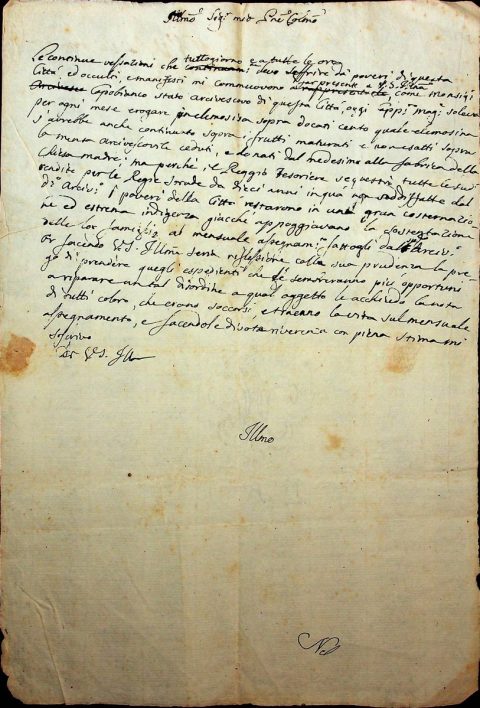 Illmo Sigr mio Pne Colmo
Le continue vessazioni che tuttogiorno, e a tutte le ore
continuam devo soffrire da poveri di questa
Città ed occulti, e manifesti mi commuovono a far presente a V. S. Illma
rappresentare come Monsigr
Arcivesc Capobianco stato arcivescovo di questa Città, oggi soleva
per ogni mese erogare in elemosina sopra docati cento quale elemosina
s'avrebbe anche continuato sopra i frutti maturati e non esatti sopra
la menza arcivescovile ceduti, e donati dal medesimo alla fabrica della
Chiesa madre; ma perché il Reggio Tesoriere sequestrò tutte le sud
rendite per le Regie Strade da dieci anni in qua non soddisfatte dal
do Arcivo I poveri della Città restarono in una gran costernazio
ne ed estrema indigenza giacché appoggiavano la sostentazione
delle lor famiglie al mensuale assegnam fattogli dall'Arcivo
Or facendo V. S. Illma seria riflessione colla sua prudenza la pre
go di prendere quegli espedienti che le sembreranno più opportuni
a riparare un tal disordine a qual oggetto le acchiudo la nota
di tutti coloro, che erano soccorsi, e traeano la vita sul mensuale
assegnamento, e facendole divota riverenza con piena stima mi
soscrivo
Di V. S. Illma
Illmo